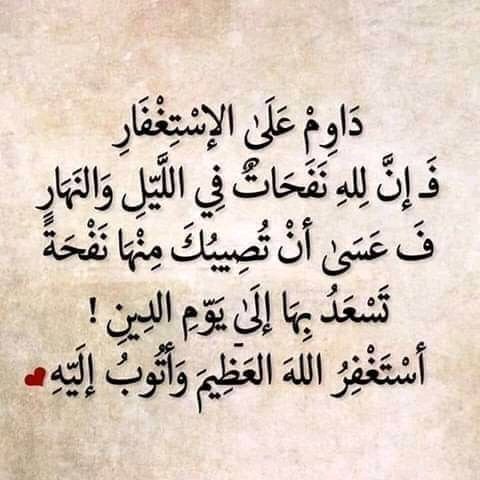 دَاوِمْ عَلَىٰ الإسْتِغْفَارِ
فَـ إنَّ لِلهِ نَفَحَاتٌ فِي اللَّيّلِ وَالنَهَارِ
فَ عَسَىٰ أنْ تُصِيبُكَ مِنْهَا نَفْحَةً
تَسْعَدُ بِهَا إلَىٰ يَوّمِ الدِينِ !
أسْتَغْفِرُ اللهَ العَظِيمَ وَأتُوبُ إلَيّهِ